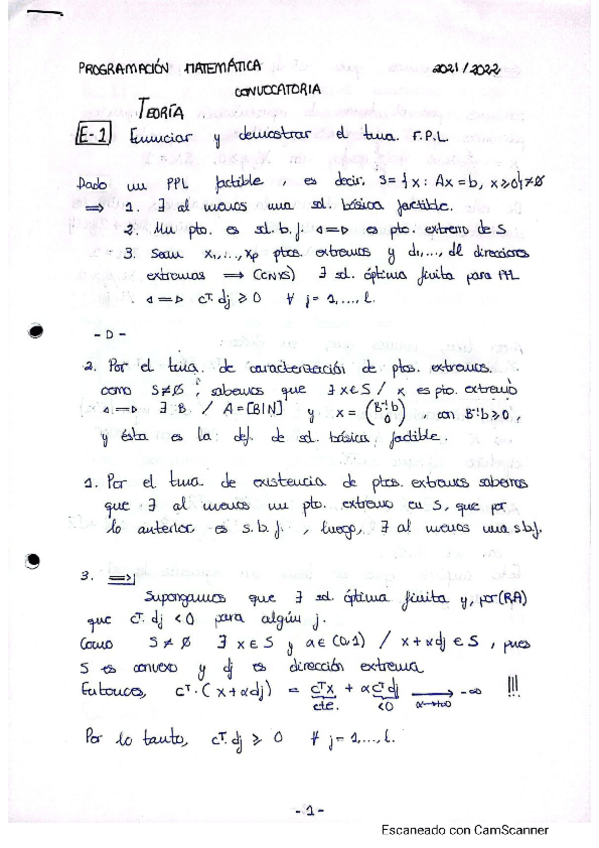 PROGRAMACIÓN MATEMÁTICA 2021/2022
CONVOCATORIA
TEORÍA
E-1 Enunciar y demostrar el tma. F.P.L.
Dado un PPL factible, es decir, S={x: Ax=b, x≥0}≠∅
⟹ 1. ∃ al menos una sol. básica factible.
2. Un pto. es sol. b. f. ⟺ es pto. extremo de S
3. Sean x1,...,xp ptos. extremos y d1,...,dl direcciones
extremas ⟹ (CNYS) ∃ sol. óptima finita para PPL
⟺ cT.dj ≥ 0 ∀ j = 1,...,l.
-D-
2. Por el tma. de caracterización de ptos. extremos.
como S≠∅, sabemos que ∃ x∈S / x es pto. extremo
⟺ ∃ B / A=[B|N] y x = (B-1b 0), con B-1b≥0,
y ésta es la def. de sol. básica factible.
1. Por el tma de existencia de ptos. extremos sabemos
que ∃ al menos un pto. extremo en S, que por
lo anterior es s.b.f., luego, ∃ al menos una sbf.
3. ⟹|
Supongamos que ∃ sol. óptima finita y, por (RA)
que cT.dj < 0 para algún j.
Como S ≠ ∅ ∃ x∈S y α∈(0,1) / x+αdj ∈ S, pues
S es convexo y dj es dirección extrema
Entonces, cT.(x+αdj) = cTx + αcTdj → -∞ !!!
cte. <0 α→+∞
Por lo tanto, cT.dj ≥ 0 ∀ j=1,...,l.
-1-
Escaneado con CamScanner